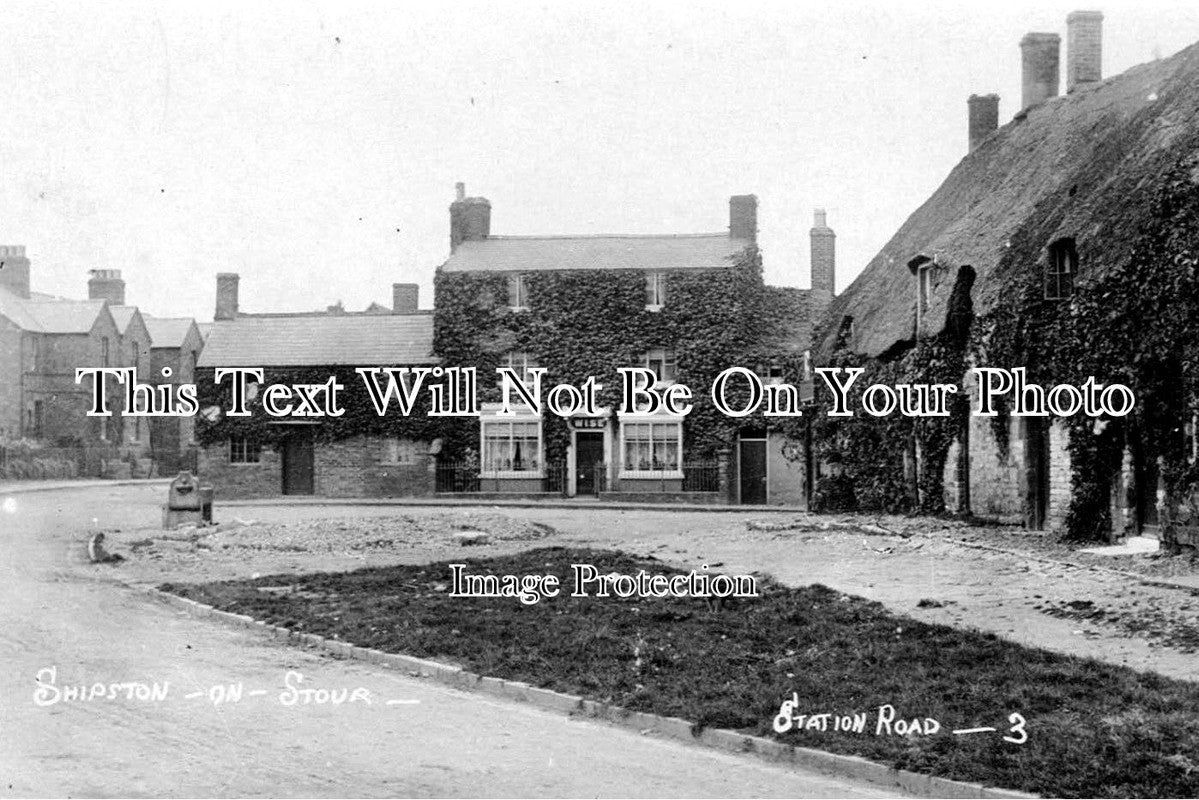 This Text Will Not Be On Your Photo
Image Protection
SHIPSTON - ON - STOUR -
STATION ROAD - 3